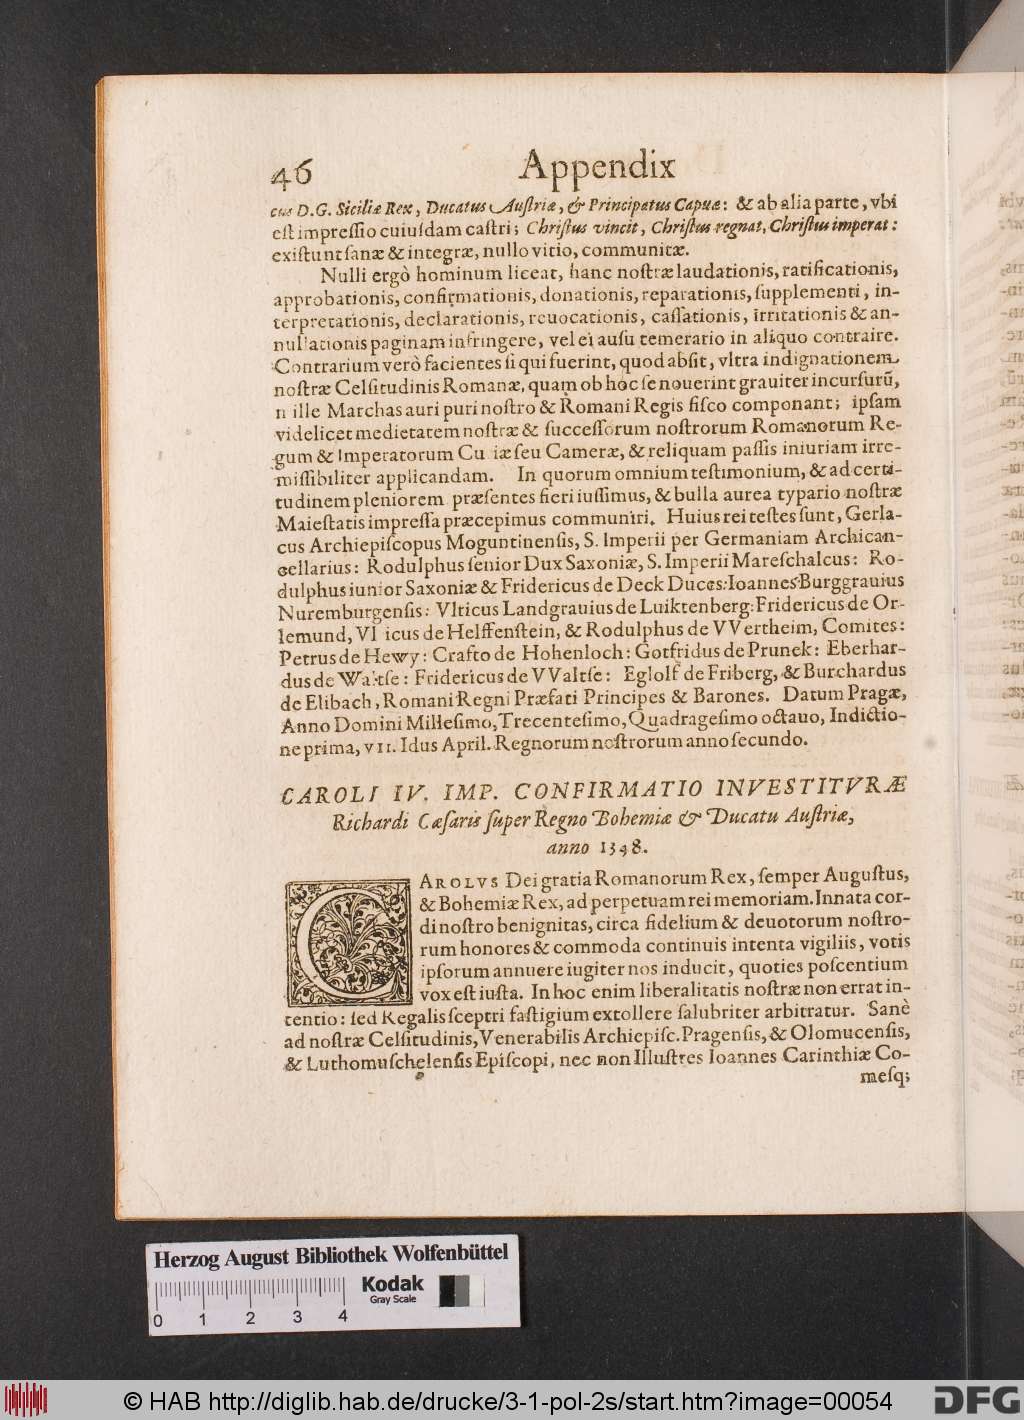 46 Appendix
cus D.G. Siciliæ Rex, Ducatus Auſtriæ, & Principatus Capuæ: & ab alia parte, vbi
eſt impreſſio cuiuſdam caſtri; Chriſtus vincit, Chriſtus regnat, Chriſtus imperat:
exiſtunt ſanæ & integræ, nullo vitio, communitæ.
Nulli ergò hominum liceat, hanc noſtræ laudationis, ratificationis,
approbationis, confirmationis, donationis, reparationis, ſupplementi, in-
terpretationis, declarationis, reuocationis, caſſationis, irritationis & an-
nullationis paginam infringere, vel ei auſu temerario in aliquo contraire.
Contrarium verò facientes ſi qui fuerint, quod abſit, vltra indignationem
noſtræ Celſitudinis Romanæ, quam ob hoc ſe nouerint grauiter incurſurũ,
n ille Marchas auri puri noſtro & Romani Regis fiſco componant; ipſam
videlicet medietatem noſtræ & ſucceſſorum noſtrorum Romanorum Re-
gum & Imperatorum Cu iæ ſeu Cameræ, & reliquam paſſis iniuriam irre-
miſſibiliter applicandam. In quorum omnium teſtimonium, & ad certi-
tudinem pleniorem præſentes fieri iuſſimus, & bulla aurea typario noſtræ
Maieſtatis impreſſa præcepimus communiri. Huius rei teſtes ſunt, Gerla-
cus Archiepiſcopus Moguntinenſis, S. Imperii per Germaniam Archican-
cellarius: Rodulphus ſenior Dux Saxoniæ, S. Imperii Mareſchalcus: Ro-
dulphus iunior Saxoniæ & Fridericus de Deck Duces: Ioannes Burggrauius
Nuremburgenſis: Vlricus Landgrauius de Luiktenberg: Fridericus de Or-
lemund, Vl icus de Helffenſtein, & Rodulphus de VVertheim, Comites:
Petrus de Hewy: Crafto de Hohenloch: Gotfridus de Prunek: Eberhar-
dus de Waltſe: Fridericus de VValtſe: Eglolf de Friberg, & Burchardus
de Elibach, Romani Regni Præfati Principes & Barones. Datum Pragæ,
Anno Domini Milleſimo, Trecenteſimo, Quadrageſimo octauo, Indictio-
ne prima, VII. Idus April. Regnorum noſtrorum anno ſecundo.
CAROLI IV. IMP. CONFIRMATIO INVESTITVRÆ
Richardi Cæſaris ſuper Regno Bohemiæ & Ducatu Auſtriæ,
anno 1348.
CAROLVS Dei gratia Romanorum Rex, ſemper Auguſtus,
& Bohemiæ Rex, ad perpetuam rei memoriam. Innata cor-
di noſtro benignitas, circa fidelium & deuotorum noſtro-
rum honores & commoda continuis intenta vigiliis, votis
ipſorum annuere iugiter nos inducit, quoties poſcentium
vox eſt iuſta. In hoc enim liberalitatis noſtræ non errat in-
tentio: ſed Regalis ſceptri faſtigium extollere ſalubriter arbitratur. Sanè
ad noſtræ Celſitudinis, Venerabilis Archiepiſc. Pragenſis, & Olomucenſis,
& Luthomuſchelenſis Epiſcopi, nec non Illuſtres Ioannes Carinthiæ Co-
meſq;
Herzog August Bibliothek Wolfenbüttel
Kodak
Gray Scale
0 1 2 3 4
© HAB http://diglib.hab.de/drucke/3-1-pol-2s/start.htm?image=00054
DFG